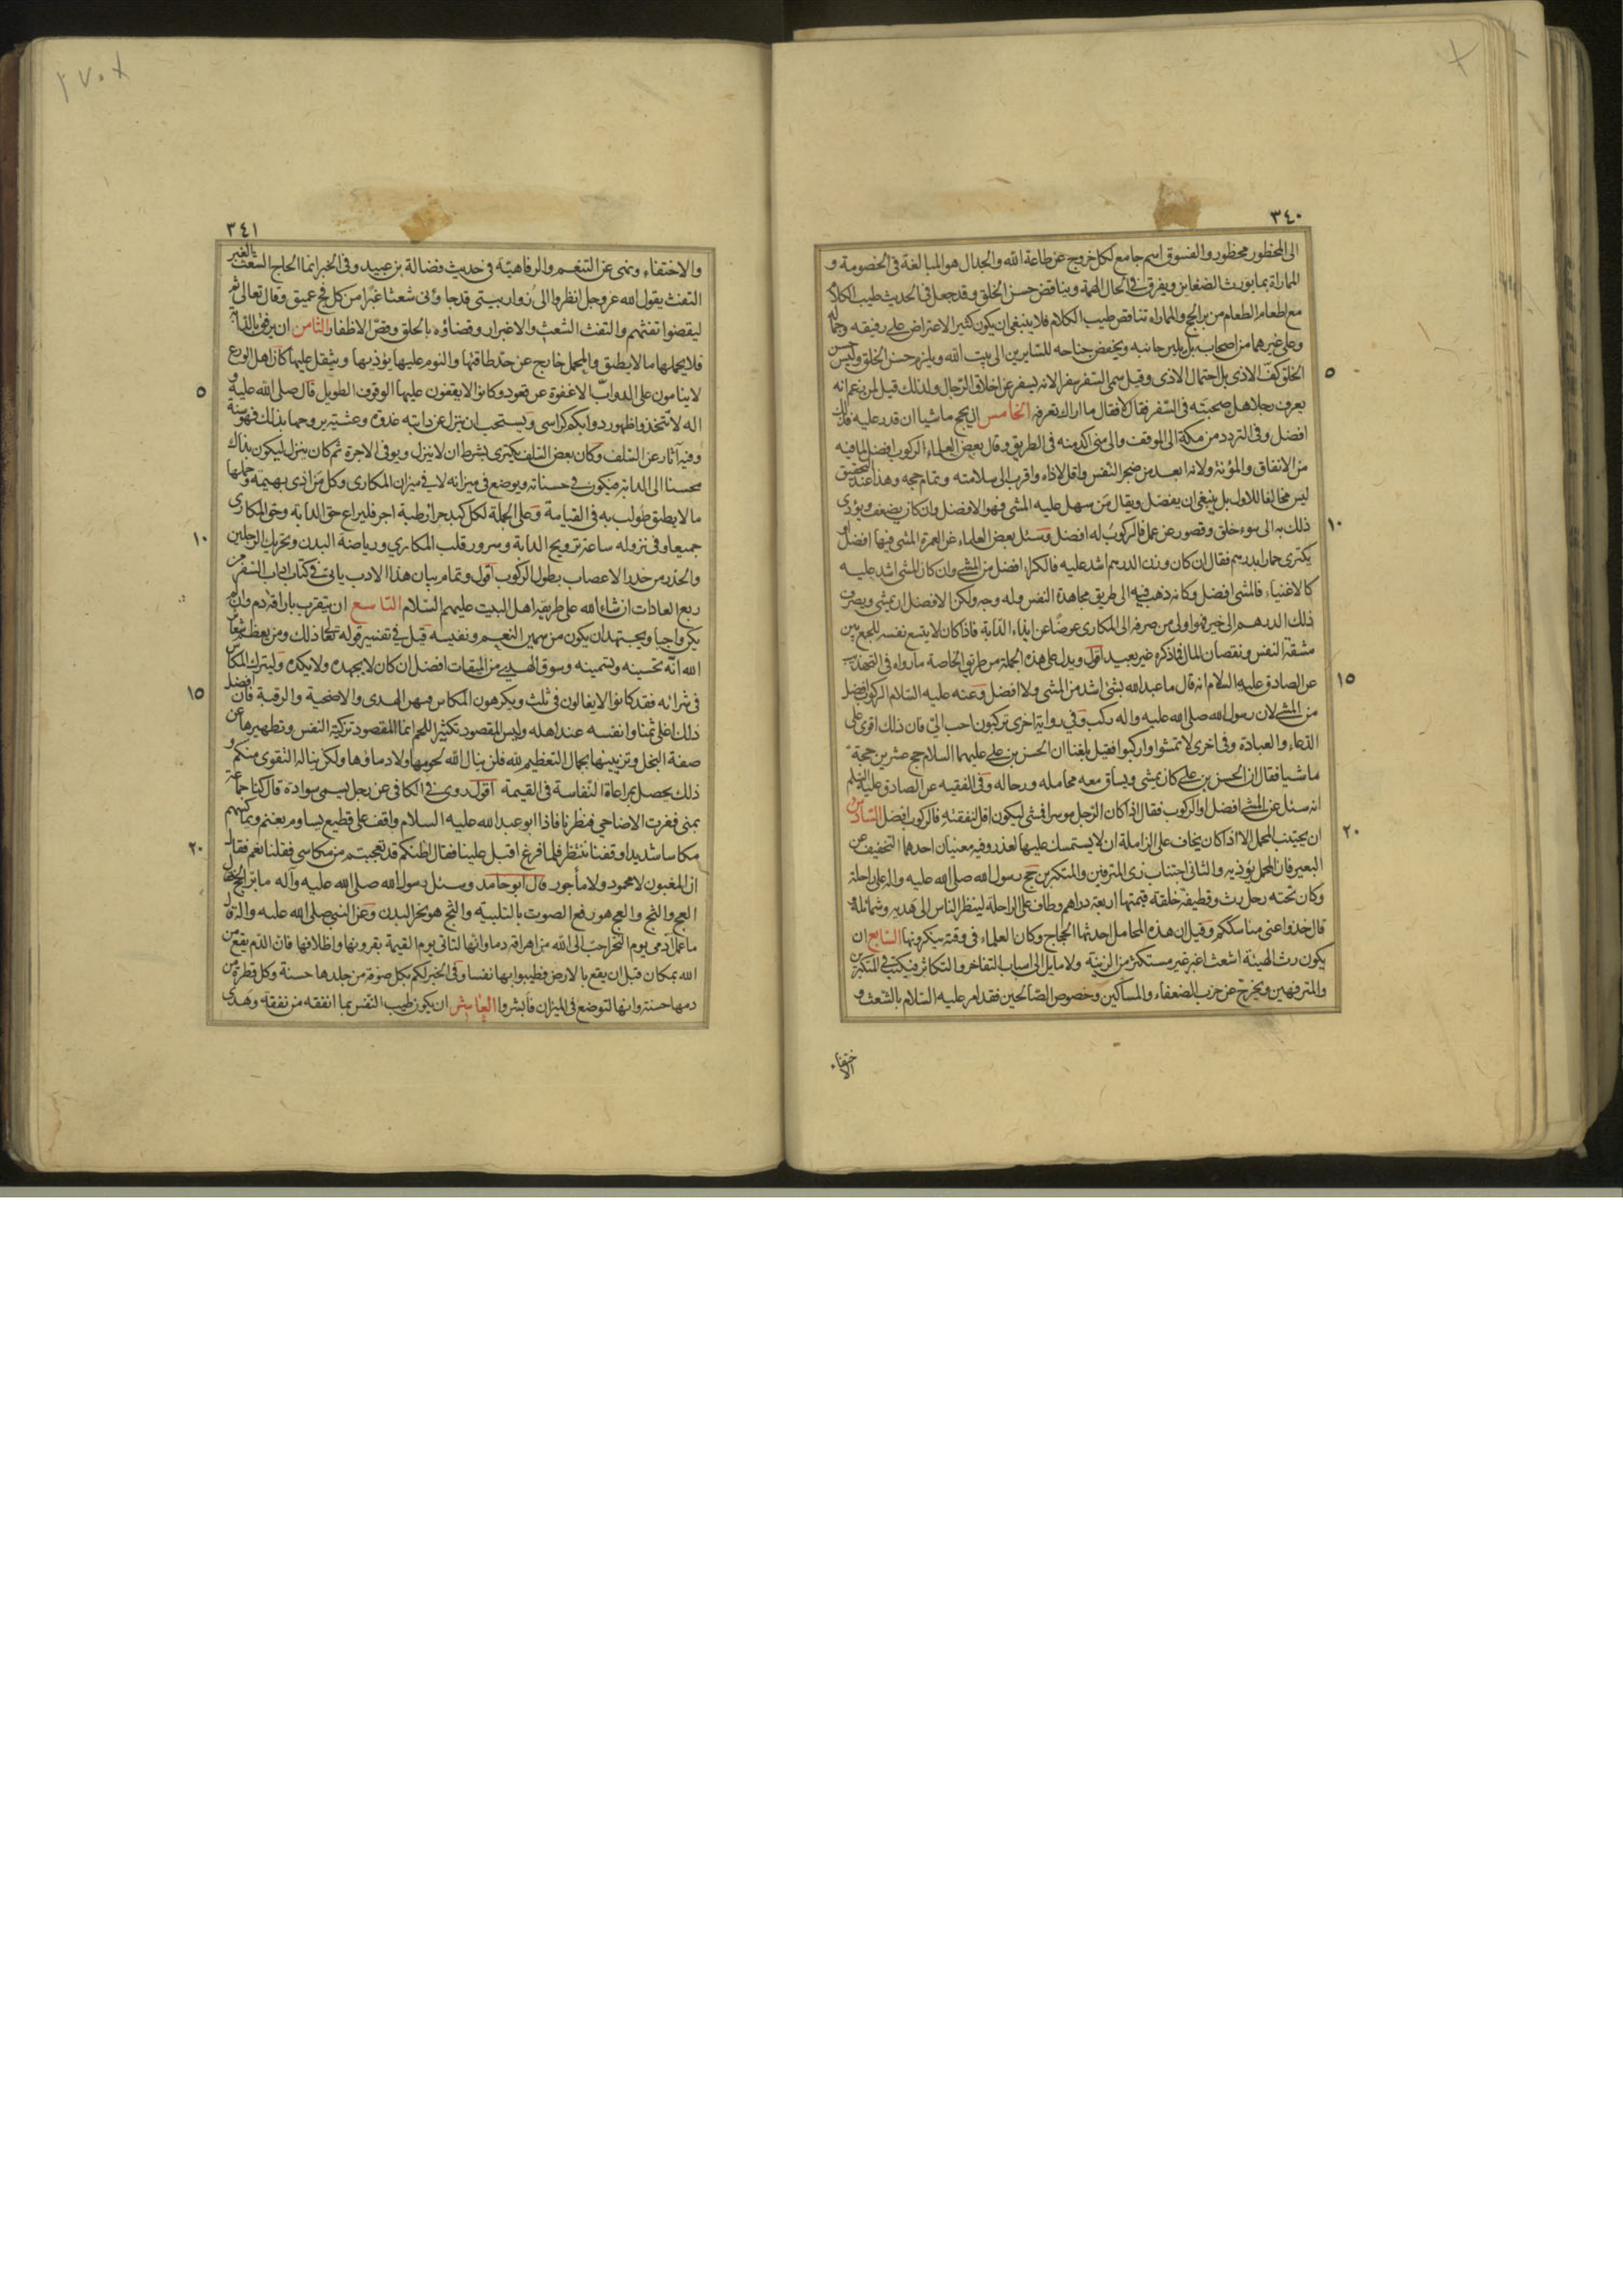 ٣٤٠
الى المحظور محظور والفسوق اسم جامع لكل خروج عن طاعة الله والجدال هو المبالغة فى الخصومة و
المماراة بما يورث الضغاين ويفرق فى الحال الهمة ويناقض حسن الخلق وقد جعل فى الحديث طيب الكلام
مع اطعام الطعام من بر الحج والمماراة تناقض طيب الكلام فلا ينبغى ان يكون كثير الاعتراض على رفيقه وجماله
وعلى غيرهما من اصحابه بل يلين جانبه ويخفض جناحه للسايرين الى بيت الله ويلزم حسن الخلق وليس حسن
الخلق كف الاذى بل احتمال الاذى وقيل سمى السفر سفرا لانه يسفر عن اخلاق الرجال ولذلك قيل لمن زعم انه
يعرف رجلا هل صحبته فى السفر فقال لا فقال ما اراك تعرفه الخامس ان يحج ماشيا ان قدر عليه فذلك
افضل وفى التردد من مكة الى الموقف والى منى اكد منه فى الطريق وقال بعض العلماء الركوب افضل لما فيه
من الانفاق والمؤنة ولانه ابعد من ضجر النفس واقل لاذاه واقرب الى سلامته وتمام حجه وهذا عند التحقيق
ليس مخالفا للاول بل ينبغى ان يفصل ويقال من سهل عليه المشى فهو الافضل وان كان يضعف ويؤدى
ذلك به الى سوء خلق وقصور عن عمل فالركوب له افضل وسئل بعض العلماء عن العمرة المشى فيها افضل او
يكترى حمارا بدرهم فقال ان كان وزن الدرهم اشد عليه فالكراء افضل من المشى وان كان المشى اشد عليه
كالاغنياء فالمشى افضل وكانه ذهب فيه الى طريق مجاهدة النفس وله وجه ولكن الافضل ان يمشى ويصرف
ذلك الدرهم الى خير فهو اولى من صرفه الى المكارى عوضا عن ايذاء الدابة فاذا كان لا يتسع نفسه للجمع بين
مشقة النفس ونقصان المال فما ذكره غير بعيد اقول ويدل على هذه الجملة من طريق الخاصة ما رواه فى التهذيب
عن الصادق عليه السلام انه قال ما عبد الله بشئ اشد من المشى ولا افضل وعنه عليه السلام الركوب افضل
من المشى لان رسول الله صلى الله عليه واله ركب وفى رواية اخرى تركبون احب الى فان ذلك اقوى على
الدعاء والعبادة وفى اخرى لا تمشوا واركبوا فقيل بلغنا ان الحسن بن على عليهما السلام حج عشرين حجة
ماشيا فقال ان الحسن بن على كان يمشى ويساق معه محامله ورحاله وفى الفقيه عن الصادق عليه السلم
انه سئل عن المشى افضل او الركوب فقال اذا كان الرجل موسرا فمشى ليكون اقل لنفقته فالركوب افضل السادس
ان يجتنب المحمل الا اذا كان يخاف على الزاملة ان لا يستمسك عليها لعذر وفيه معنيان احدهما التخفيف عن
البعير فان المحمل يؤذيه والثانى اجتناب زى المترفين والمتكبرين حج رسول الله صلى الله عليه واله على راحلة
وكان تحته رحل رث وقطيفة خلقة قيمتها اربعة دراهم وطاف على الراحلة لينظر الناس الى هديه وشمائله و
قال خذوا عنى مناسككم وقيل ان هذه المحامل احدثها الحجاج وكان العلماء فى وقته ينكرونها السابع ان
يكون رث الهيئة اشعث اغبر غير مستكثر من الزينة ولا مايل الى اسباب التفاخر والتكاثر فيكتب فى المتكبرين
والمترفهين ويخرج عن حزب الضعفاء والمساكين وخصوص الصالحين فقد امر عليه السلام بالشعث و
الاختفاء
٥
١٠
١٥
٢٠
٣٤١
والاختفاء ونهى عن التنعم والرفاهية فى حديث فضالة بن عبيد وفى الخبر انما الحاج الشعث بالغبر
التفث يقول الله عز وجل انظروا الى زوار بيتى قد جاؤنى شعثا غبرا من كل فج عميق وقال تعالى ثم
ليقضوا تفثهم والتفث الشعث والاغبرار وقضاؤه بالحلق وقص الاظفار الثامن ان يرفق بالدابة
فلا يحملها ما لا يطيق والمحمل خارج عن حد طاقتها والنوم عليها يؤذيها ويثقل عليها كان اهل الورع
لا ينامون على الدواب الا غفوة عن قعود وكانوا لا يقفون عليها الوقوف الطويل قال صلى الله عليه و
اله لا تتخذوا ظهور دوابكم كراسى ويستحب ان ينزل عن دابته غدوة وعشية يروحها بذلك فهو سنة
وفيه آثار عن السلف وكان بعض السلف يكترى بشرط ان لا ينزل ويوفى الاجرة ثم كان ينزل ليكون بذلك
محسنا الى الدابة فيكون فى حسناته ويوضع فى ميزانه لا فى ميزان المكارى وكل من اذى بهيمة وحملها
ما لا يطيق طولب به فى القيامة وعلى الجملة لكل كبد حراء رطبة اجر فليراع حق الدابة وحق المكارى
جميعا وفى نزوله ساعة ترويح الدابة وسرور قلب المكارى ورياضة البدن وتحريك الرجلين
والحذر من خدر الاعصاب بطول الركوب اقول وتمام بيان هذا الادب ياتى فى كتاب اداب السفر من
ربع العادات ان شاء الله على طريقة اهل البيت عليهم السلام التاسع ان يتقرب باراقة دم وان لم
يكن واجبا ويجتهد ان يكون من سمين النعم ونفيسه قيل فى تفسير قوله تعالى ذلك ومن يعظم شعائر
الله انه تحسينه وتسمينه وسوق الهدى من الميقات افضل ان كان لا يجهده ولا يكده وليترك المكاس
فى شرائه فقد كانوا لا يغالون فى ثلث ويكرهون المكاس فيهن الهدى والاضحية والرقبة فان افضل
ذلك اغلى ثمنا وانفسه عند اهله وليس المقصود تكثير اللحم انما المقصود تزكية النفس وتطهيرها عن
صفة البخل وتزيينها بجمال التعظيم لله فلن ينال الله لحومها ولا دماؤها ولكن يناله التقوى منكم و
ذلك يحصل بمراعاة النفاسة فى القيمة اقول روى فى الكافى عن رجل يسمى سوادة قال كنا جماعة
بمنى فعزت الاضاحى فنظرنا فاذا ابو عبد الله عليه السلام واقف على قطيع يساوم بغنم ويماكسهم
مكاسا شديدا فوقفنا ننتظر فلما فرغ اقبل علينا فقال اظنكم قد تعجبتم من مكاسى فقلنا نعم فقال
ان المغبون لا محمود ولا مأجور قال ابو حامد وسئل رسول الله صلى الله عليه وآله ما بر الحج فقال
العج والثج والعج هو رفع الصوت بالتلبية والثج هو نحر البدن وعن النبى صلى الله عليه واله قال
ما عمل آدمى يوم النحر احب الى الله من اهراقه دما وانها لتاتى يوم القيمة بقرونها واظلافها فان الدم يقع من
الله بمكان قبل ان يقع بالارض فطيبوا بها نفسا وفى الخبر لكم بكل صوفة من جلدها حسنة وكل قطرة من
دمها حسنة وانها لتوضع فى الميزان فأبشروا العاشر ان يكون طيب النفس بما انفقه من نفقة وهدى
٥
١٠
١٥
٢٠